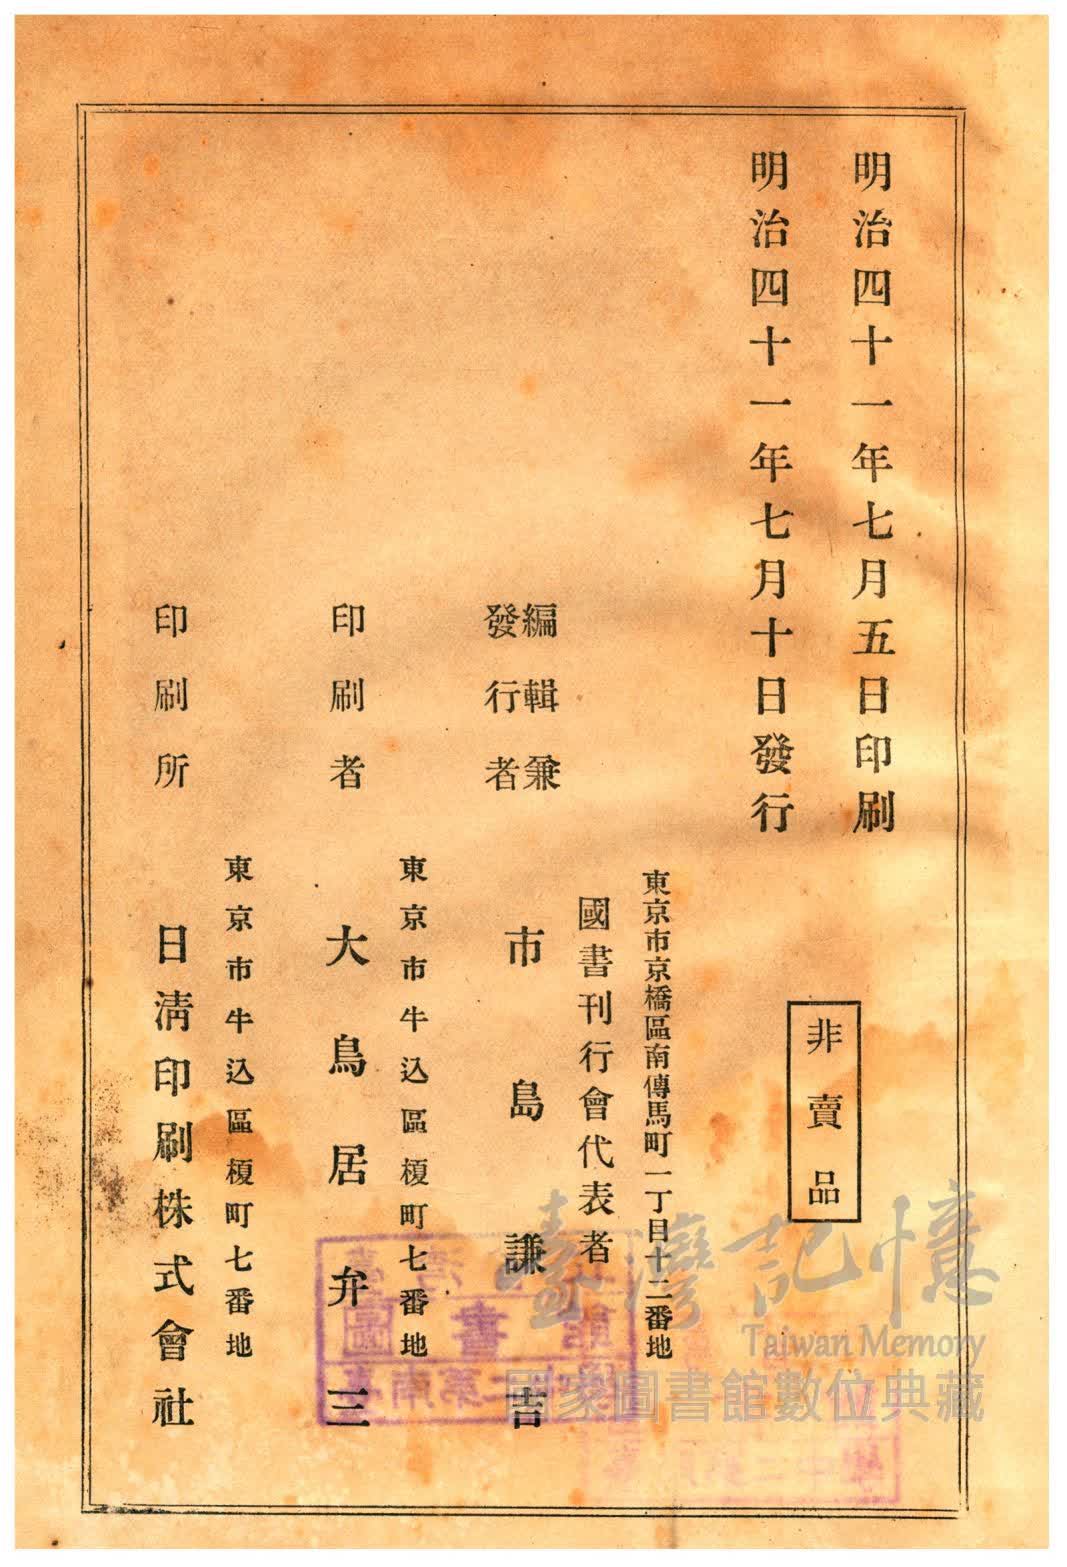 明治四十一年七月五日印刷
明治四十一年七月十日發行
非賣品
東京市京橋區南傳馬町一丁目十二番地
國書刊行會代表者
編輯兼
發行者
市島謙吉
東京市牛込區榎町七番地
印刷者
大鳥居弁三
東京市牛込區榎町七番地
印刷所
日淸印刷株式會社
臺灣記憶
Taiwan Memory
國家圖書館數位典藏
圖書